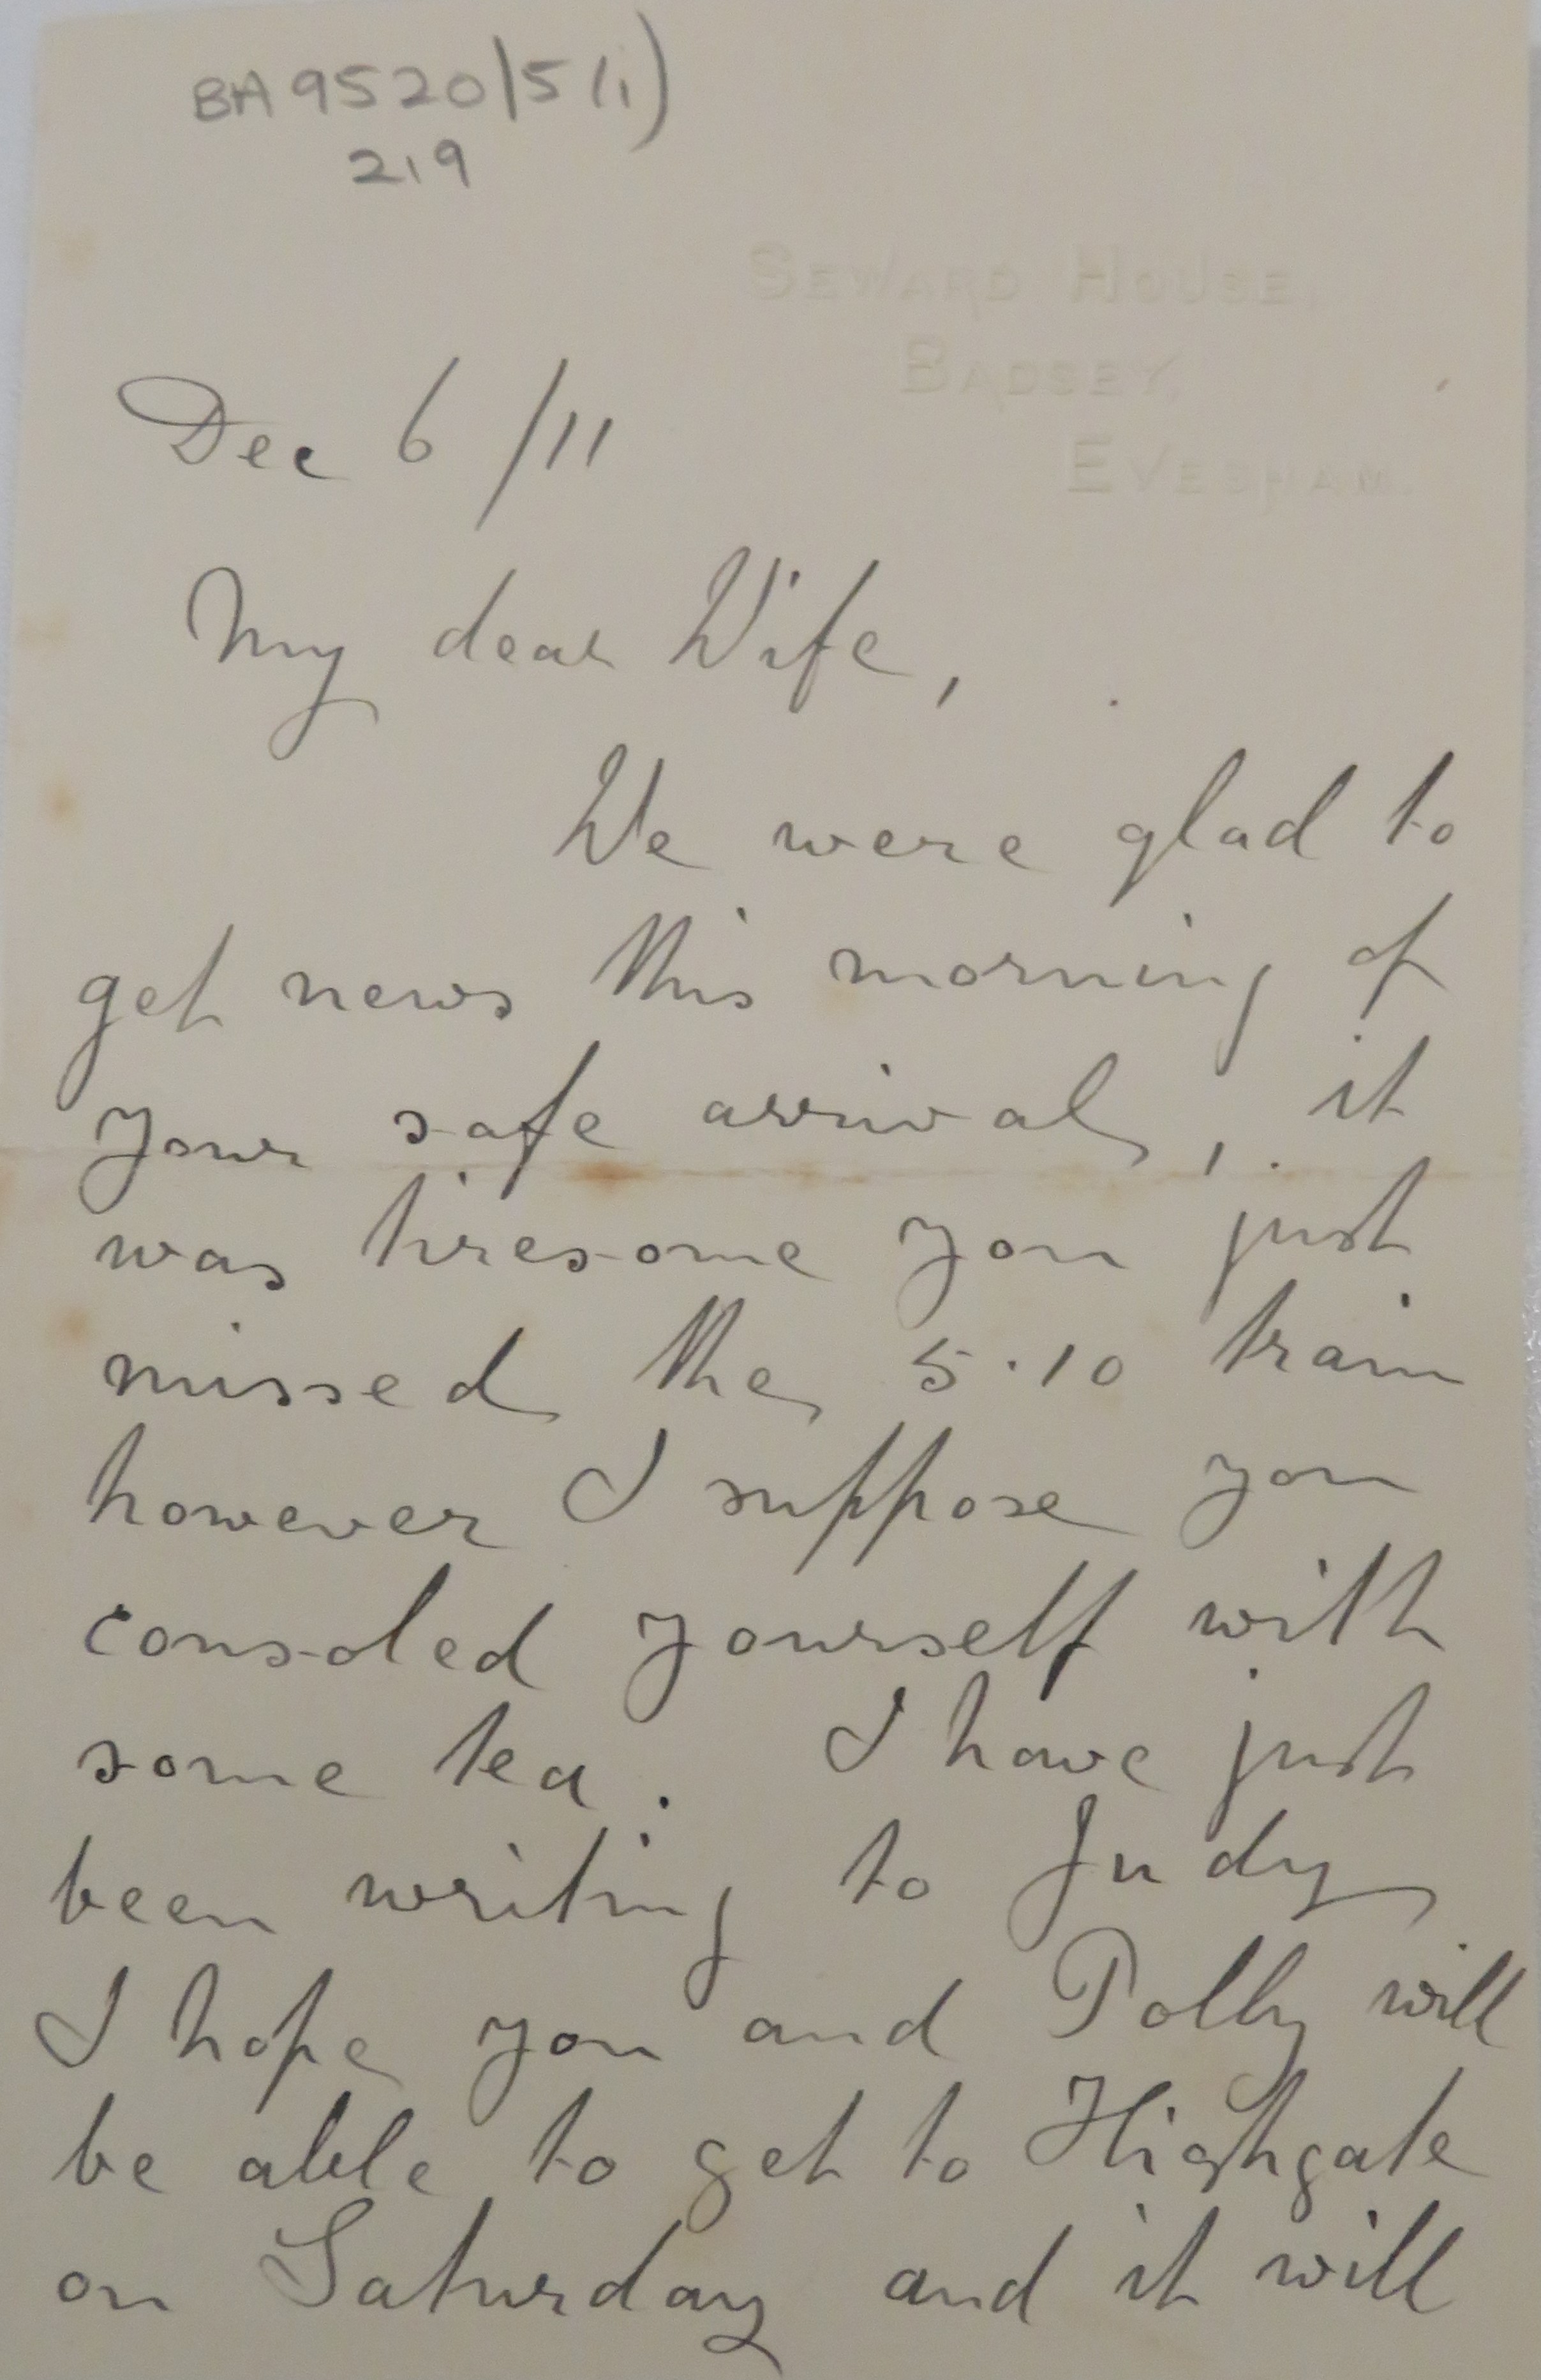 BA 9520/5 (i)
219
SEWARD HOUSE,
BADSEY,
EVESHAM.
Dec 6 /11
My dear Wife,
We were glad to
get news this morning of
your safe arrival, it
was tiresome you just
missed the 5.10 train
however I suppose you
consoled yourself with
some tea. I have just
been writing to Judy
I hope you and Polly will
be able to get to Highgate
on Saturday and it will